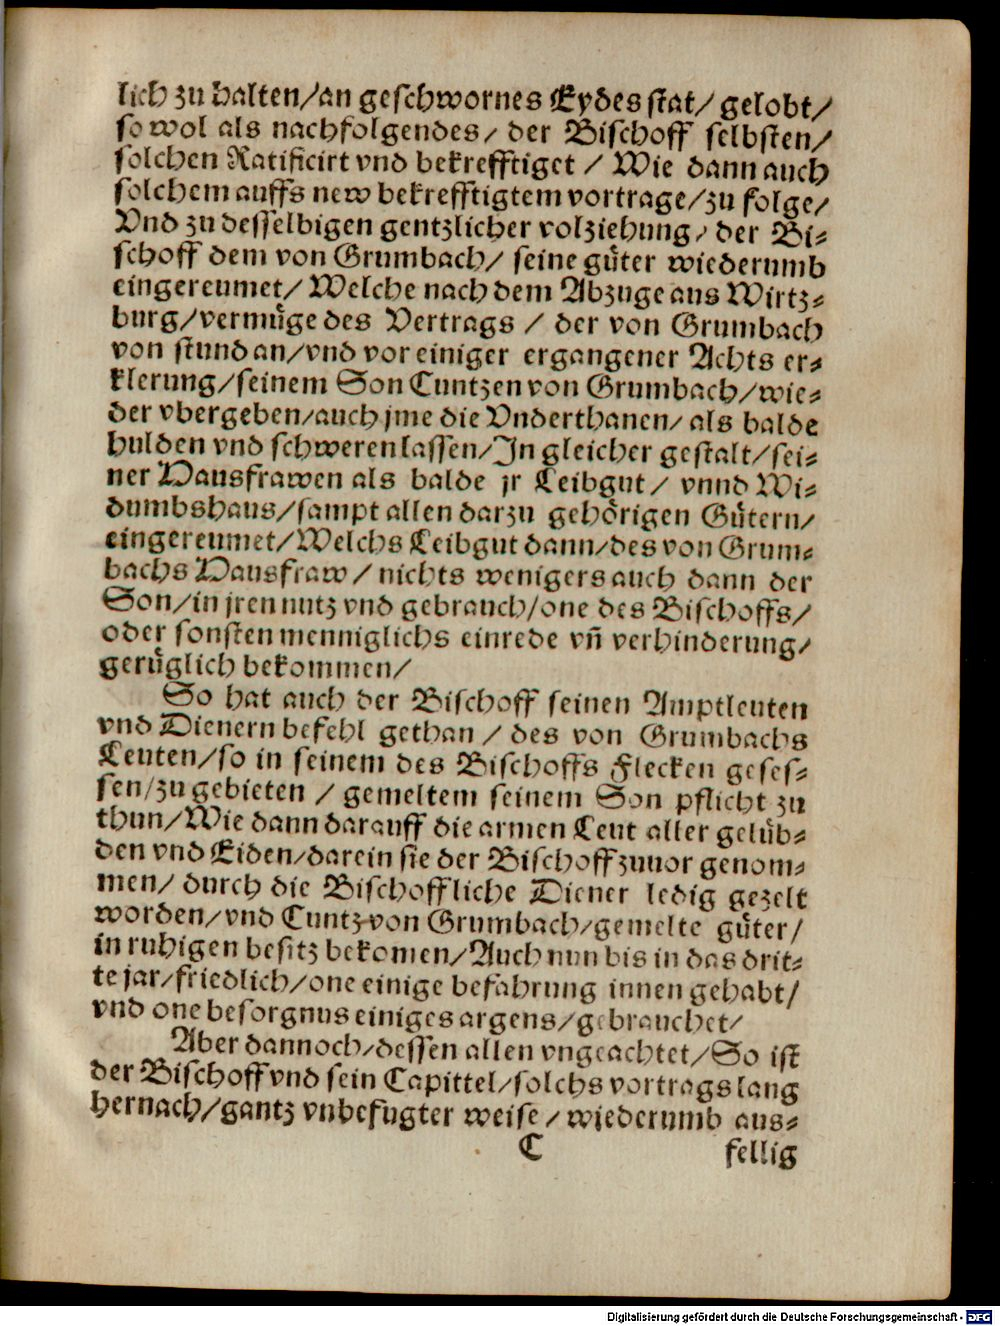 lich zu halten/an geschwornes Eydes stat/ gelobt/
so wol als nachfolgendes/ der Bischoff selbsten/
solchen Ratificirt vnd bekrefftiget / Wie dann auch
solchem auffs new bekrefftigtem vortrage/zu folge/
Vnd zu desselbigen gentzlicher volziehung/ der Bi-
schoff dem von Grumbach/ seine guͤter wiederumb
eingereumet/ Welche nach dem Abzuge aus Wirtz-
burg/vermuͤge des Vertrags / der von Grumbach
von stund an/vnd vor einiger ergangener Achts er-
klerung/seinem Son Cuntzen von Grumbach/wie-
der vbergeben/auch jme die Vnderthanen/ als balde
hulden vnd schweren lassen/In gleicher gestalt/sei-
ner Hausfrawen als balde jr Leibgut/ vnnd Wi-
dumbshaus/sampt allen darzu gehoͤrigen Guͤtern/
eingereumet/Welchs Leibgut dann/des von Grum-
bachs Hausfraw / nichts wenigers auch dann der
Son/in jren nutz vnd gebrauch/one des Bischoffs/
oder sonsten menniglichs einrede vñ verhinderung/
geruͤglich bekommen/
So hat auch der Bischoff seinen Amptleuten
vnd Dienern befehl gethan / des von Grumbachs
Leuten/so in seinem des Bischoffs Flecken geses-
sen/zu gebieten / gemeltem seinem Son pflicht zu
thun/Wie dann darauff die armen Leut aller geluͤb-
den vnd Eiden/darein sie der Bischoff zuuor genom-
men/ durch die Bischoffliche Diener ledig gezelt
worden/vnd Cuntz von Grumbach/gemelte guͤter/
in ruhigen besitz bekomen/Auch nun bis in das drit-
te jar/friedlich/one einige befahrung innen gehabt/
vnd one besorgnus einiges argens/gebrauchet/
Aber dannoch/dessen allen vngeachtet/So ist
der Bischoff vnd sein Capittel/solchs vortrags lang
hernach/gantz vnbefugter weise/wiederumb aus-
C fellig
Digitalisierung gefördert durch die Deutsche Forschungsgemeinschaft - DFG